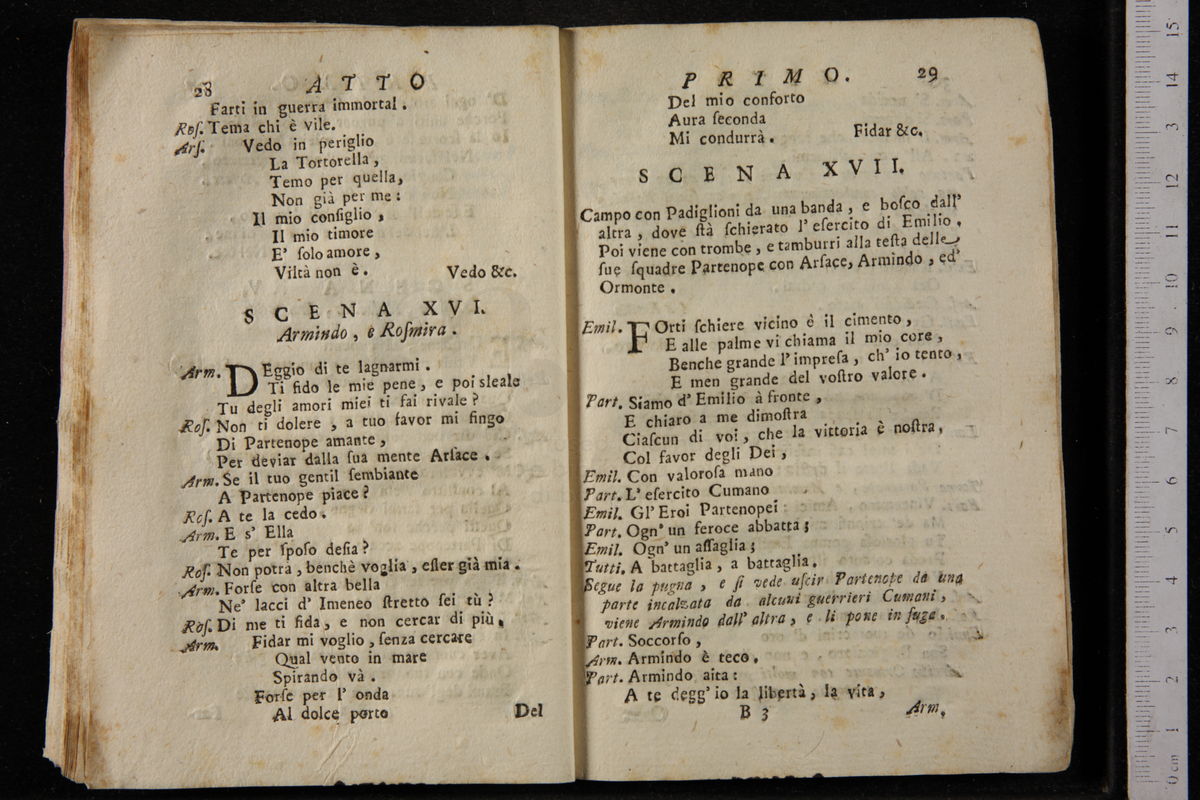 28 ATTO
Farti in guerra immortal.
Roſ. Tema chi è vile.
Arſ. Vedo in periglio
La Tortorella,
Temo per quella,
Non già per me:
Il mio conſiglio,
Il mio timore
E' ſolo amore,
Viltà non è. Vedo &c.
SCENA XVI.
Armindo, e Roſmira.
Arm. DEggio di te lagnarmi.
Ti fido le mie pene, e poi sleale
Tu degli amori miei ti fai rivale?
Roſ. Non ti dolere, a tuo favor mi fingo
Di Partenope amante,
Per deviar dalla ſua mente Arſace.
Arm. Se il tuo gentil ſembiante
A Partenope piace?
Roſ. A te la cedo.
Arm. E s' Ella
Te per ſpoſo deſia?
Roſ. Non potrà, benchè voglia, eſſer già mia.
Arm. Forſe con altra bella
Ne' lacci d' Imeneo ſtretto ſei tù?
Roſ. Di me ti fida, e non cercar di più.
Arm. Fidar mi voglio, ſenza cercare
Qual vento in mare
Spirando và.
Forſe per l' onda
Al dolce porto
Del
PRIMO. 29
Del mio conforto
Aura ſeconda
Mi condurrà. Fidar &c.
SCENA XVII.
Campo con Padiglioni da una banda, e boſco dall'
altra, dove ſtà ſchierato l' eſercito di Emilio.
Poi viene con trombe, e tamburri alla teſta delle
ſue ſquadre Partenope con Arſace, Armindo, ed
Ormonte.
Emil. FOrti ſchiere vicino è il cimento,
E alle palme vi chiama il mio core,
Benche grande l' impreſa, ch' io tento,
E men grande del voſtro valore.
Part. Siamo d' Emilio à fronte,
E chiaro a me dimoſtra
Ciaſcun di voi, che la vittoria è noſtra,
Col favor degli Dei,
Emil. Con valoroſa mano
Part. L' eſercito Cumano
Emil. Gl' Eroi Partenopei
Part. Ogn' un feroce abbatta;
Emil. Ogn' un aſſaglia;
Tutti. A battaglia, a battaglia.
Segue la pugna, e ſi vede uſcir Partenope da una
parte incalzata da alcuni guerrieri Cumani,
viene Armindo dall' altra, e li pone in fuga.
Part. Soccorſo,
Arm. Armindo è teco.
Part. Armindo aita:
A te degg' io la libertà, la vita,
B 3 Arm.
15
14
13
12
11
10
9
8
7
6
5
4
3
2
1
0 cm